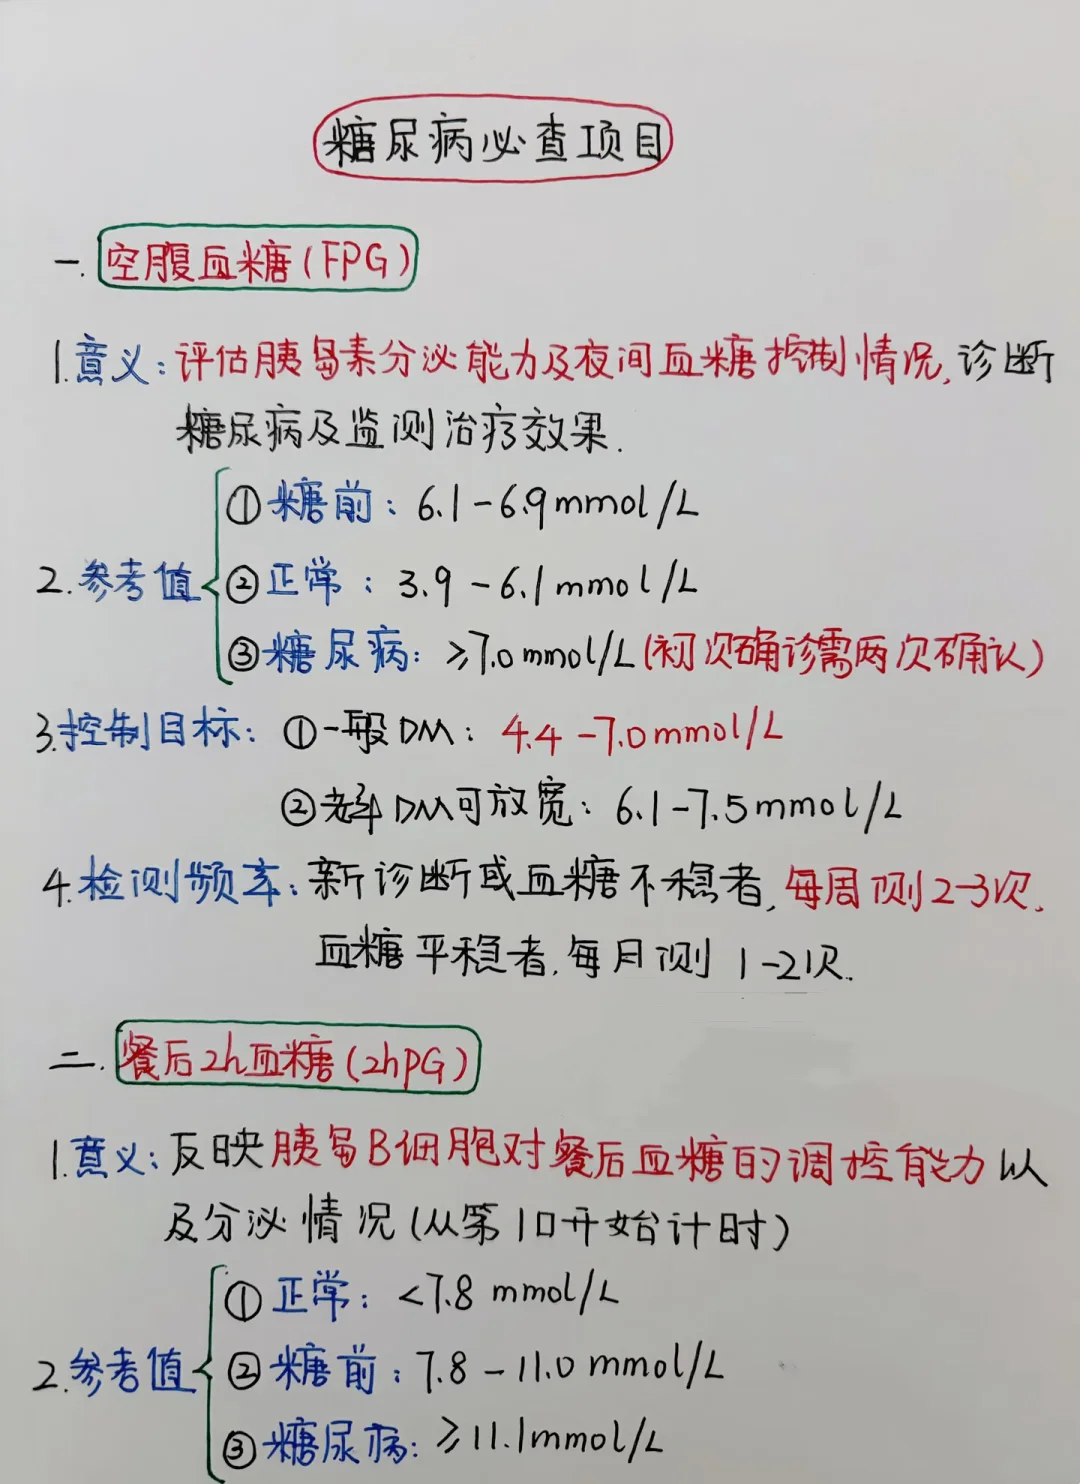 糖尿病必查项目
一. 空腹血糖(FPG)
1.意义:评估胰岛素分泌能力及夜间血糖控制情况,诊断
糖尿病及监测治疗效果.
2.参考值
①糖前:6.1-6.9mmol/L
②正常:3.9-6.1mmol/L
③糖尿病:≥7.0mmol/L(初次确诊需两次确认)
3.控制目标:①一般DM:4.4-7.0mmol/L
②老年DM可放宽:6.1-7.5mmol/L
4.检测频率:新诊断或血糖不稳者,每周测2-3次.
血糖平稳者,每月测1-2次.
二. 餐后2h血糖(2hPG)
1.意义:反映胰岛B细胞对餐后血糖的调控能力以
及分泌情况(从第1口开始计时)
2.参考值
①正常:<7.8 mmol/L
②糖前:7.8-11.0mmol/L
③糖尿病:≥11.1mmol/L